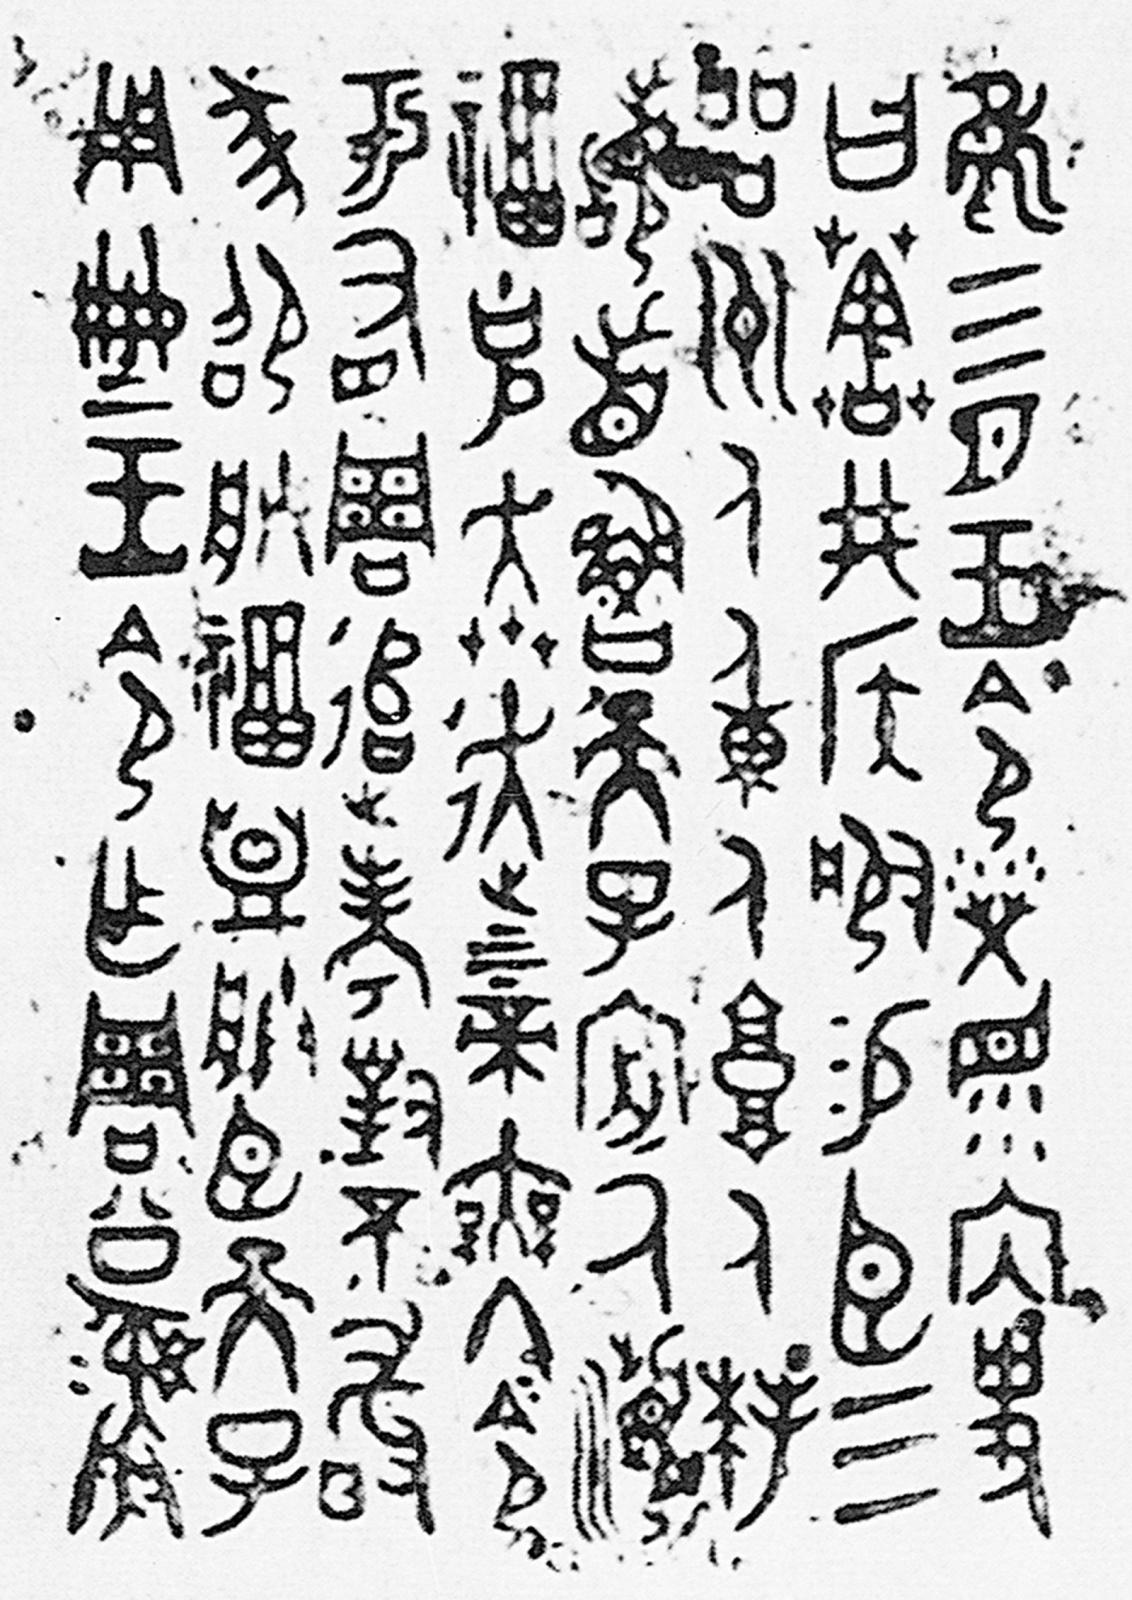 隹三月王令𤇾眔內史
曰𦯧井𥎦服易臣三
品州人重人𩫏人拜
𩒨首魯天子𡨦氒瀕
福克奔走上下帝無冬令
于右周追考對不敢
㒸卲朕福盟朕臣天子
用𠕋王令乍周公彝